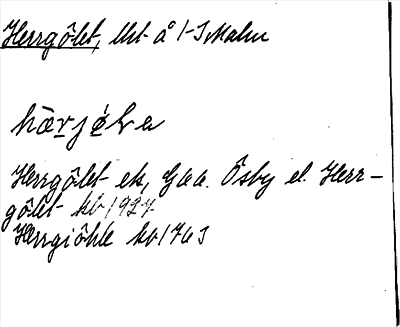 Herrgölet, lht å 1-3 Malm
hæ̀rjø̀ḷe
Herrgölet ek, Gaa. Ôsby el. Herr-
gölet kb 1927
Herrgiöhle kb 1763